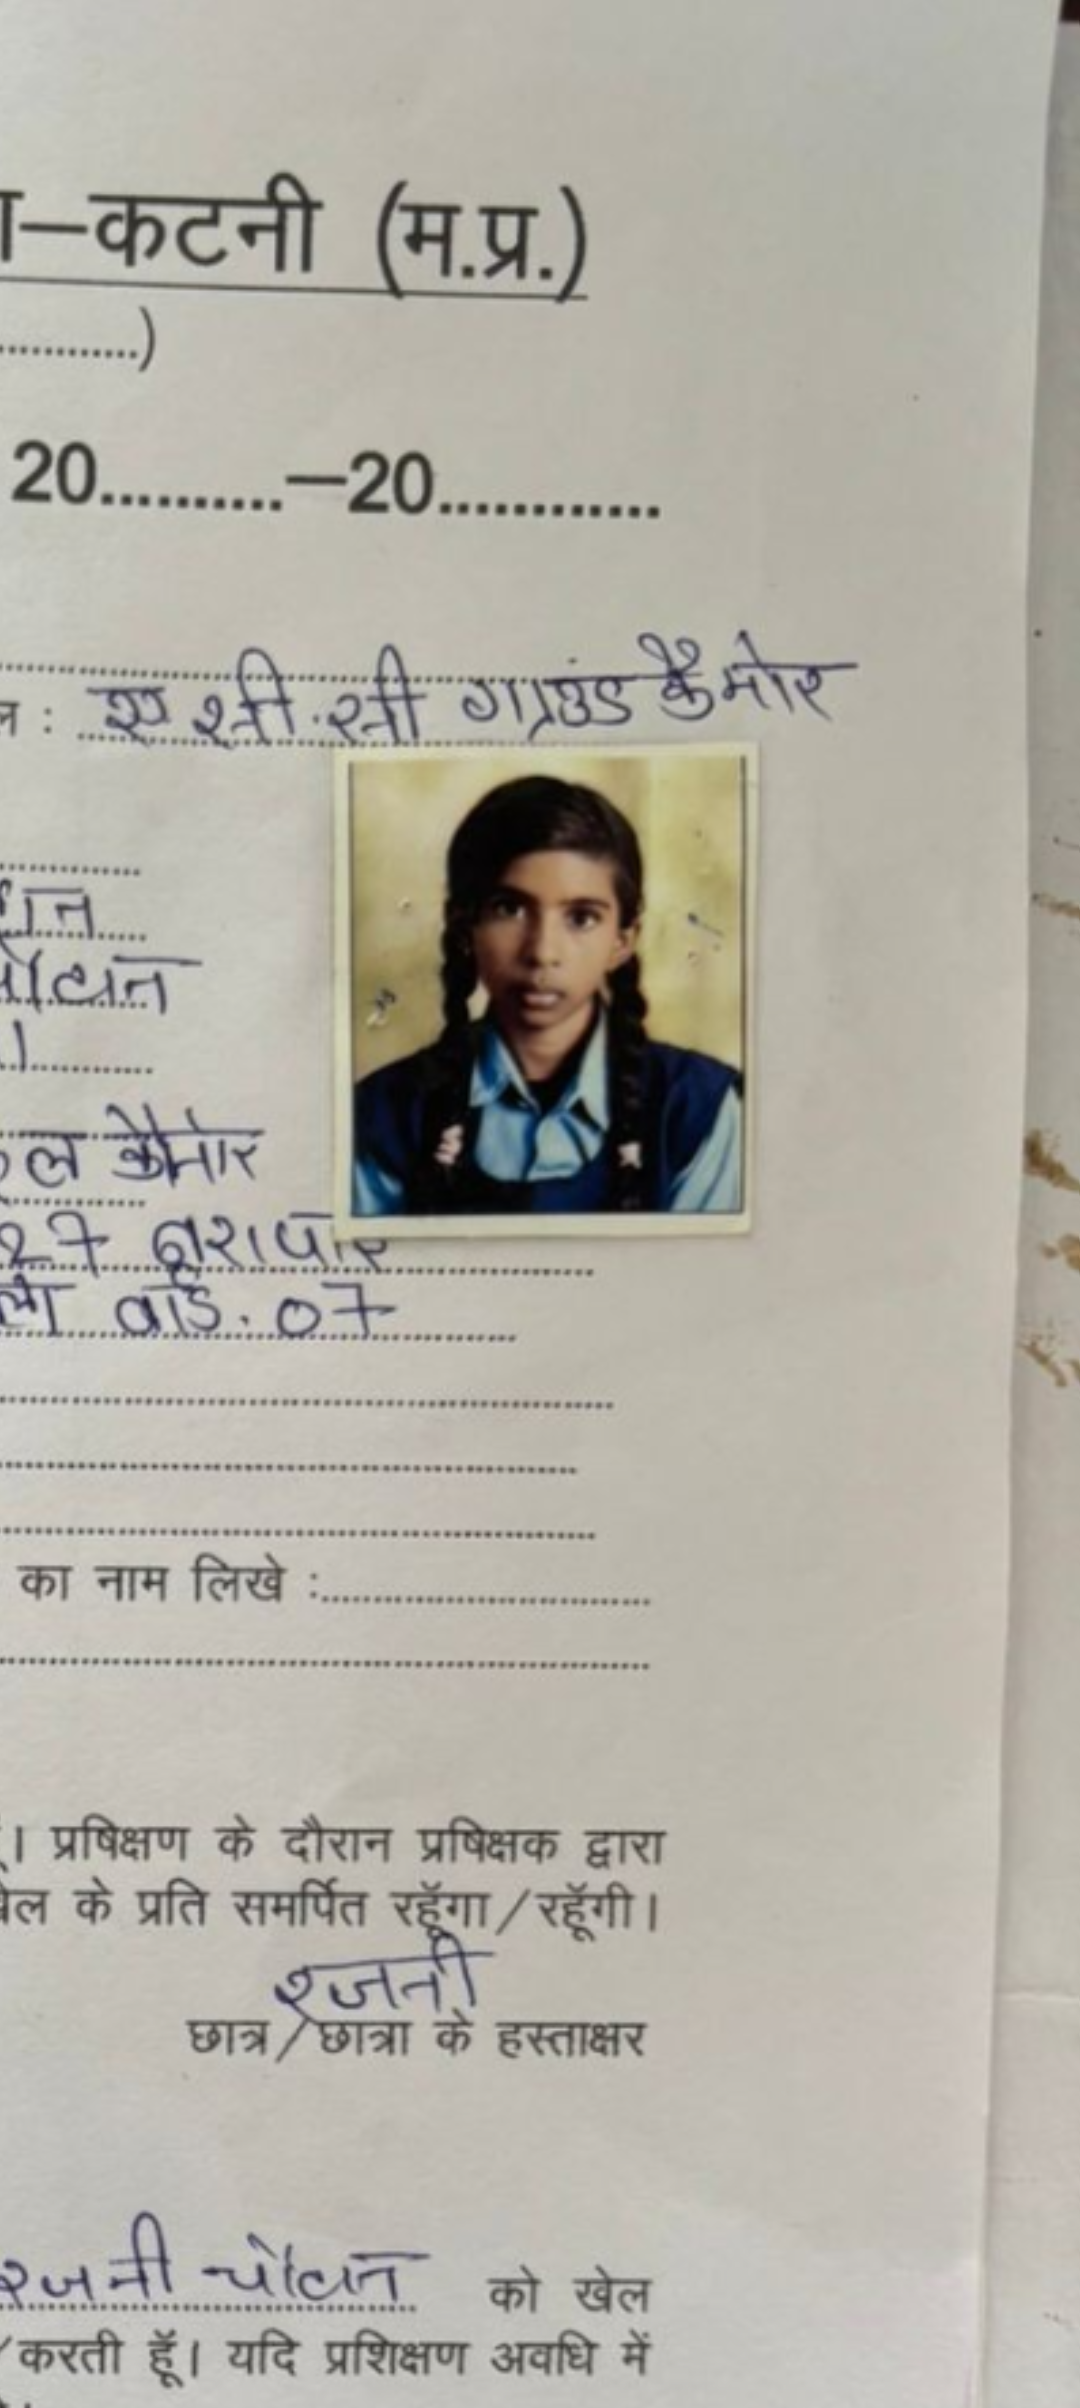 –कटनी (म.प्र.)
............)
20..........–20............
: ए सी.सी ग्राउंड कैमोर
चौहान
कैमोर
27
वार्ड. 07
का नाम लिखे :..............................
। प्रषिक्षण के दौरान प्रषिक्षक द्वारा
के प्रति समर्पित रहूॅगा/रहूॅगी।
रजनी
छात्र/छात्रा के हस्ताक्षर
रजनी चौहान को खेल
/करती हूॅ। यदि प्रशिक्षण अवधि में